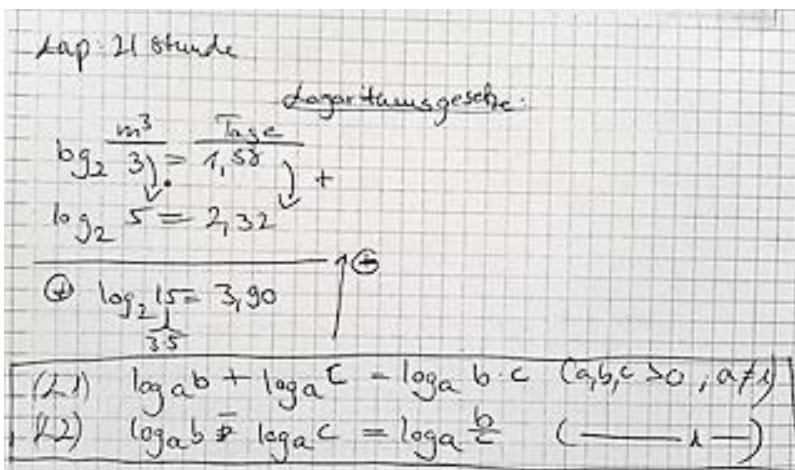 Kap: 21 Stunde
Logarithmusgesetze:
m³ Tage
log₂ 3 = 1,58
· +
log₂ 5 = 2,32
⊕
⊕ log₂ 15 = 3,90
3·5
(L1) logₐb + logₐc = logₐ b·c (a,b,c >0 ; a≠1)
(L2) logₐb - logₐc = logₐ b/c ( — " — )